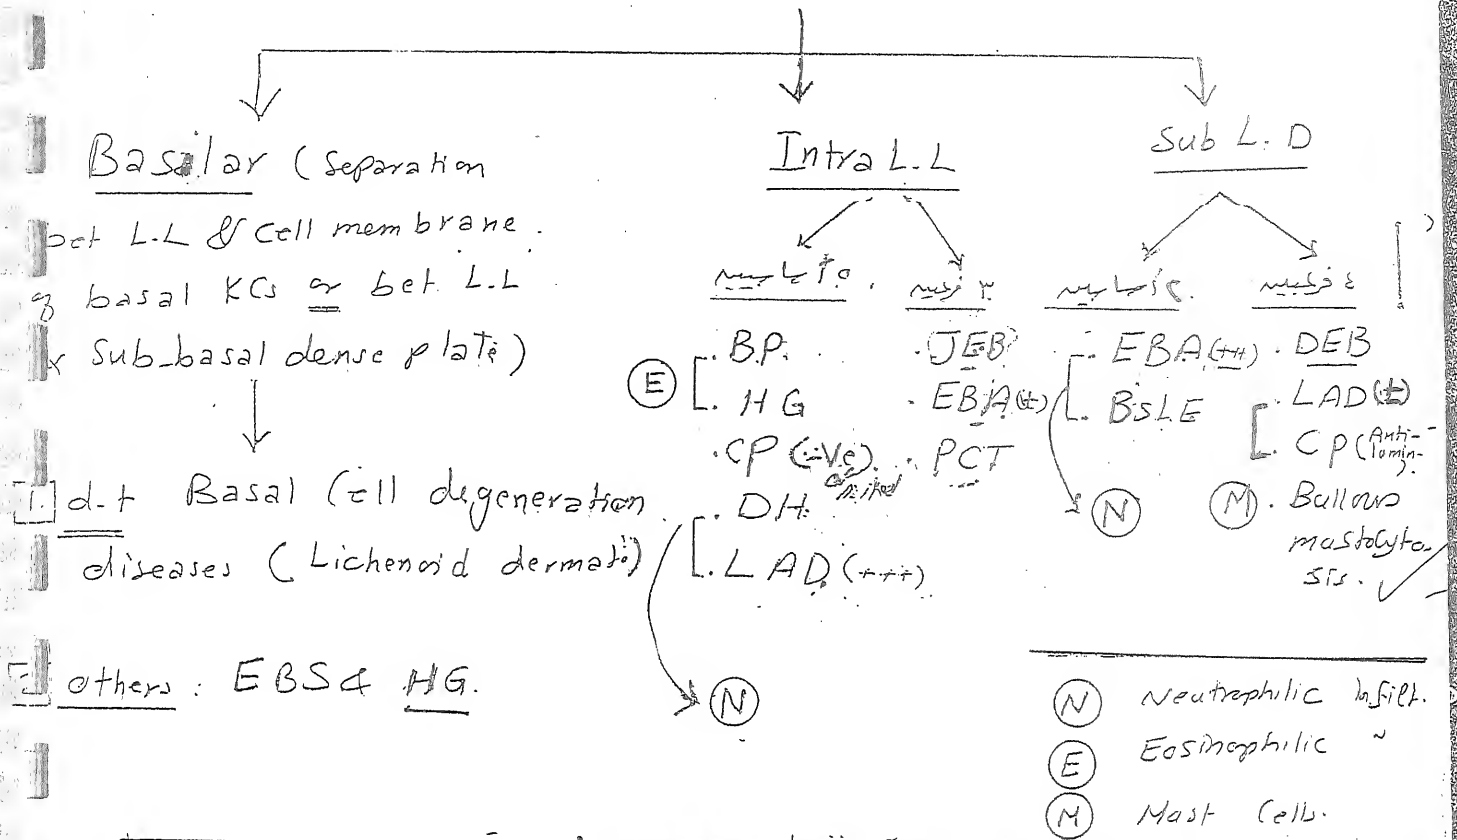 Basilar (Separation
bet L.L & Cell membrane.
of basal KCs or bet. L.L
& Sub-basal dense plate)
1. d.t Basal Cell degeneration
diseases (Lichenoid dermati)
others: EBS & HG.
Intra L.L
٥ أساسيه
B.P.
E
HG
CP (-ve)
DH
LAD (+++)
N
٣ فرعيه
JEB
EBA (+)
PCT
Sub L.D
٢ أساسيه
EBA (++)
BSLE
N
٤ فرعيه
DEB
LAD (±)
CP (Anti-
lamin-)
M . Bullous
mastocyto-
sis.
N Neutrophilic Infilt.
E Eosinophilic "
M Mast Cells.